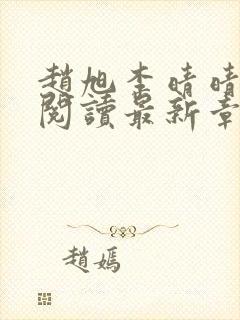 趙旭李晴晴
閱讀最新章
趙嫣